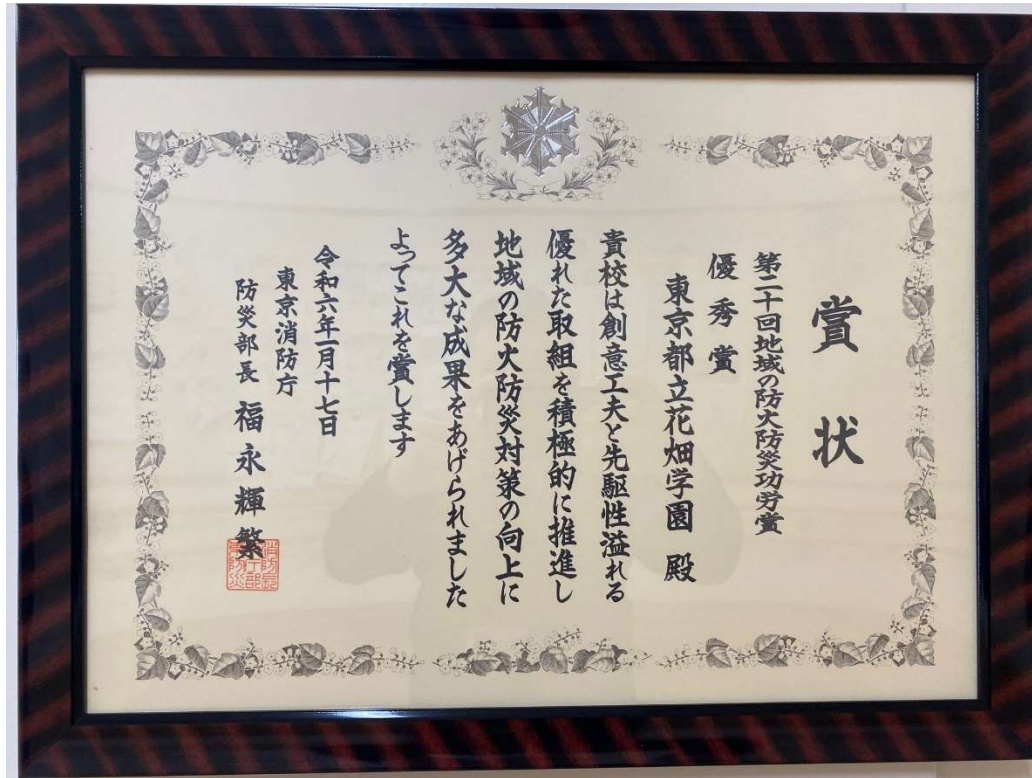 賞状
第二十回地域の防火防災功労賞
優秀賞
東京都立花畑学園 殿
貴校は創意工夫と先駆性溢れる
優れた取組を積極的に推進し
地域の防火防災対策の向上に
多大な成果をあげられました
よってこれを賞します
令和六年一月十七日
東京消防庁
防災部長 福永輝繁